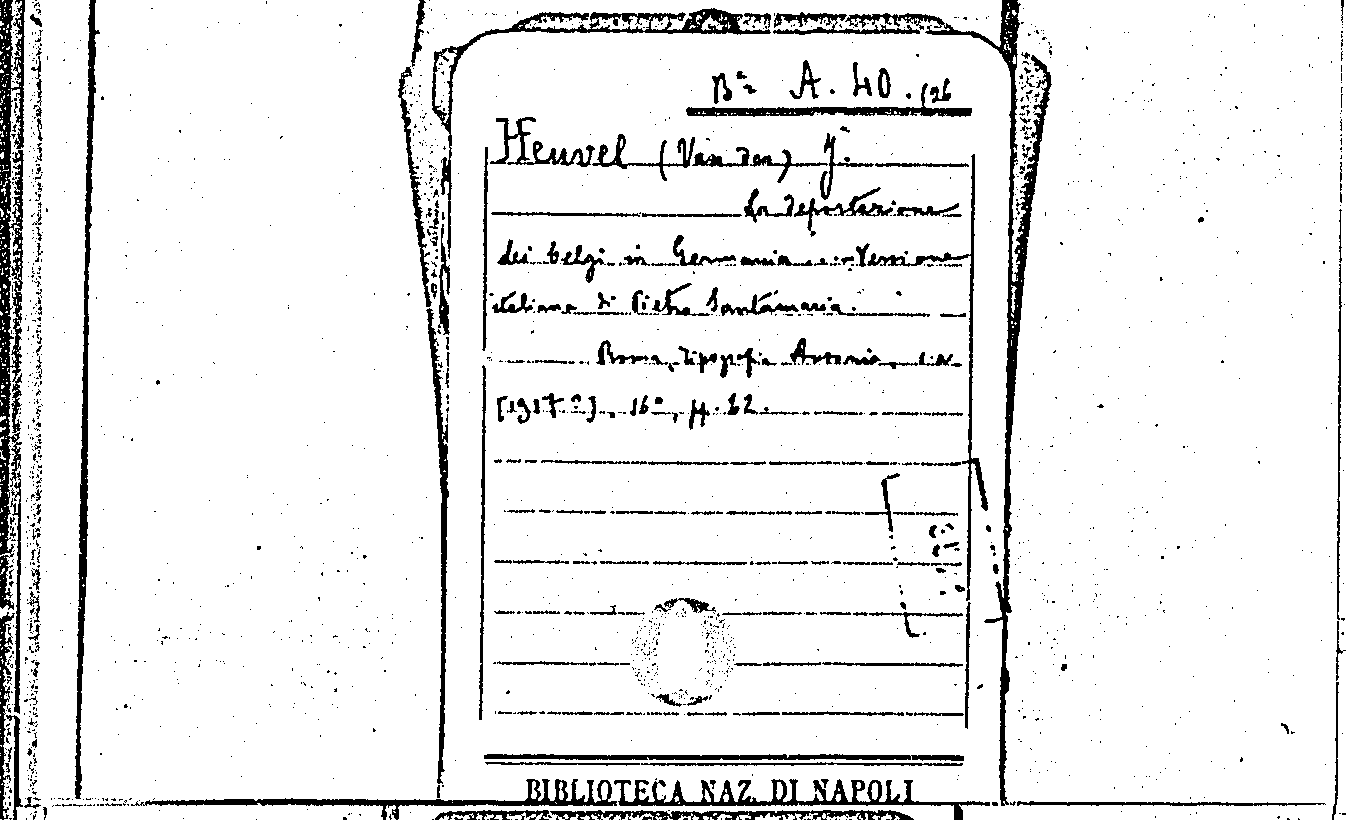 Bª A. 40. 126
Heuvel (Van den) J.
La deportazione
dei belgi in Germania ... Versione
italiana di Pietro Santamaria.
Roma, Tipografia Artero, s.a.
[1917?], 16º, pp. 22.
BIBLIOTECA NAZ. DI NAPOLI